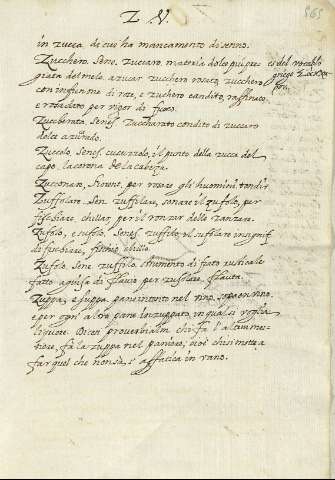 Z V.
565
in zucca di cui ha mancamento di senno.
Zucchero, Sene. Zuccaro, materia dolce piu pre
giata del mele, azucar. zucchero rosato, zucchero
con infusione di rose, e zuchero candito, raffinato,
e per rigor di fuoco.
es del vocablo
griego
Zuccherato, Senes. Zuccharato condito di zuccaro
dolce azucarado.
Zuccolo, Senes. cucuzzolo, il punto della zucca del
capo, la corona de la cabeza.
Zucconare, Fiorent. per radere gli huomini, tondir.
Zuffolare Sen. zuffilare, sonare il zufolo, per
fischiare, chillar, per il ronzar delle zanzare.
Zufolo, e zufolo, Senes. zuffilo, il zufilare in signif.
di fischiare, fischio chillo.
Zufolo, Sene. zuffilo, strumento di fiato rusticale
fatto aguisa di flauto per zufolare, flauta.
Zuppa, e suppa, pane intinto nel vino, sopa en vino,
e per ogn' altro pane inzuppato, in qual si voglia
liquore. Dicesi proverbialm. chi fa l'altrui me-
stiere, fà la zuppa nel paniere; cioè chi si mette a
far quel che non sà, s'affatica in vano.